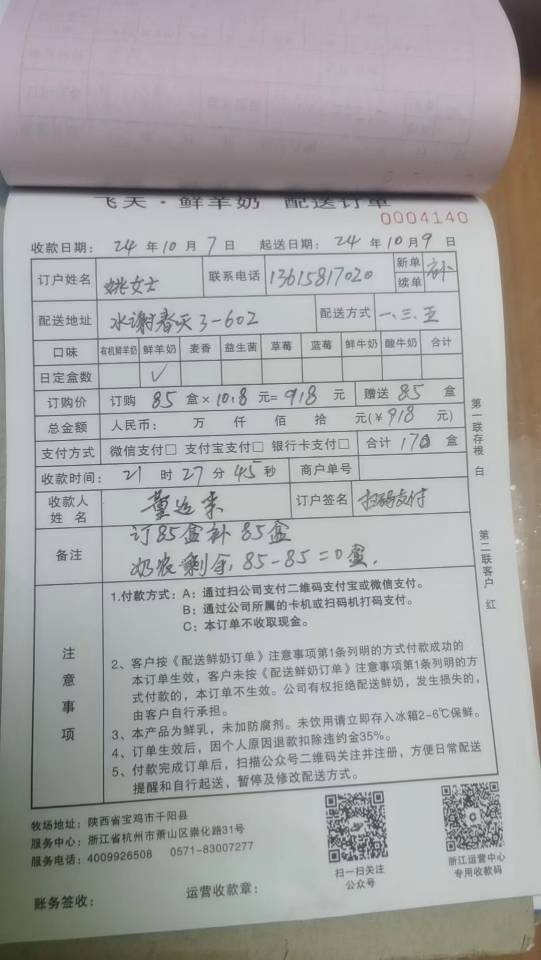 飞天·鲜羊奶 配送订单
0004140
收款日期: 24 年 10 月 7 日 起送日期: 24 年 10 月 9 日
订户姓名 姚女士 联系电话 13615817020 新单 续单 补
配送地址 水谢春天3-602 配送方式 一、三、五
口味 有机鲜羊奶 鲜羊奶 麦香 益生菌 草莓 蓝莓 鲜牛奶 酸牛奶 合计
日定盒数 ✓
订购价 订购 85 盒×10.8 元=918 元 赠送 85 盒
总金额 人民币: 万 仟 佰 拾 元(¥918 元)
支付方式 微信支付□ 支付宝支付□ 银行卡支付□ 合计 170 盒
收款时间: 21 时 27 分 45 秒 商户单号
收款人姓名 董 订户签名 扫码支付
备注 订85盒补85盒
奶农剩余, 85-85=0盒.
第一联存根 白
第二联客户 红
注意事项
1.付款方式: A: 通过扫公司支付二维码支付宝或微信支付。
B: 通过公司所属的卡机或扫码机打码支付。
C: 本订单不收取现金。
2、客户按《配送鲜奶订单》注意事项第1条列明的方式付款成功的
本订单生效, 客户未按《配送鲜奶订单》注意事项第1条列明的方
式付款的, 本订单不生效。公司有权拒绝配送鲜奶, 发生损失的,
由客户自行承担。
3、本产品为鲜乳, 未加防腐剂。未饮用请立即存入冰箱2-6℃保鲜。
4、订单生效后, 因个人原因退款扣除违约金35%。
5、付款完成订单后, 扫描公众号二维码关注并注册, 方便日常配送
提醒和自行起送, 暂停及修改配送方式。
牧场地址: 陕西省宝鸡市千阳县
服务中心: 浙江省杭州市萧山区崇化路31号
服务电话: 4009926508 0571-83007277
扫一扫关注
公众号
浙江运营中心
专用收款码
账务签收: 运营收款章: